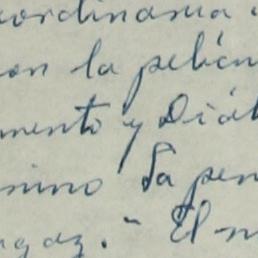 ordinaria
on la pelícu
mento y Diál
mino La pen
gaz." El m